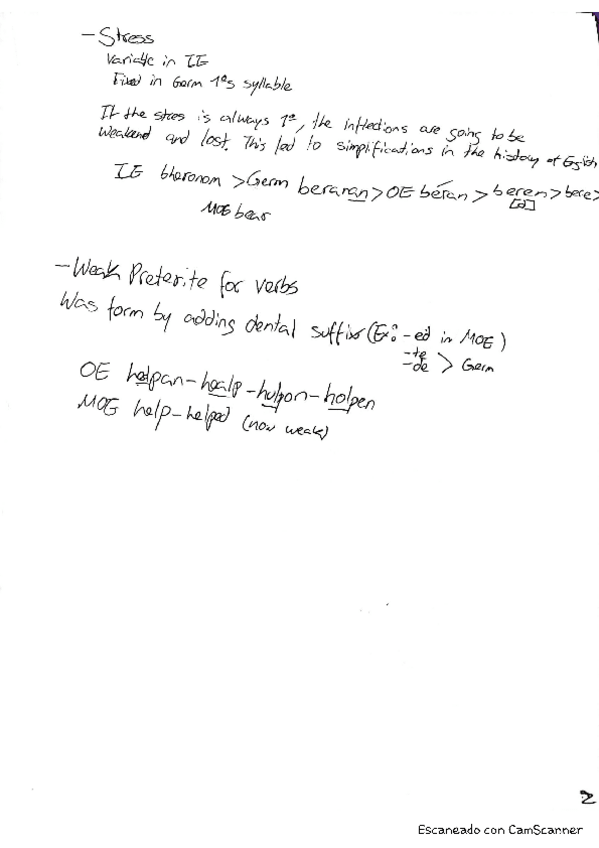 - Stress
Variable in IE
Fixed in Germ 1ºs syllable
If the stres is always 1º, the inflections are going to be
weakend and lost. This led to simplifications in the history of English
IE bheronom > Germ beranan > OE béran > beren > bere >
[ə]
MOE bear
- Weak Preterite for verbs
Was form by adding dental suffix (Ex: -ed in MOE)
-te
-de > Germ
OE helpan - healp - hulpon - holpen
MOE help - helped (now weak)
2
Escaneado con CamScanner